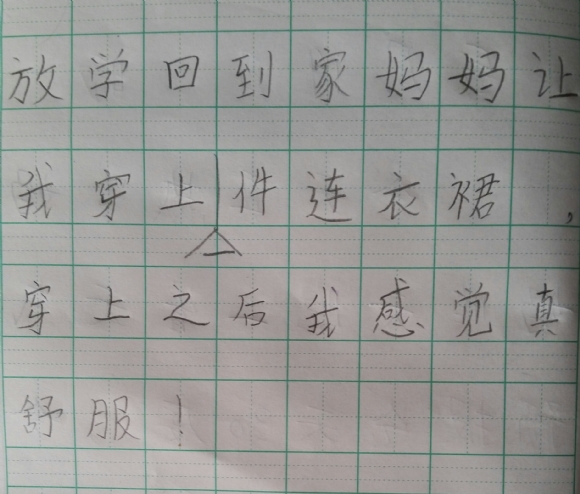 放学回到家妈妈让
我穿上一件连衣裙，
穿上之后我感觉真
舒服！